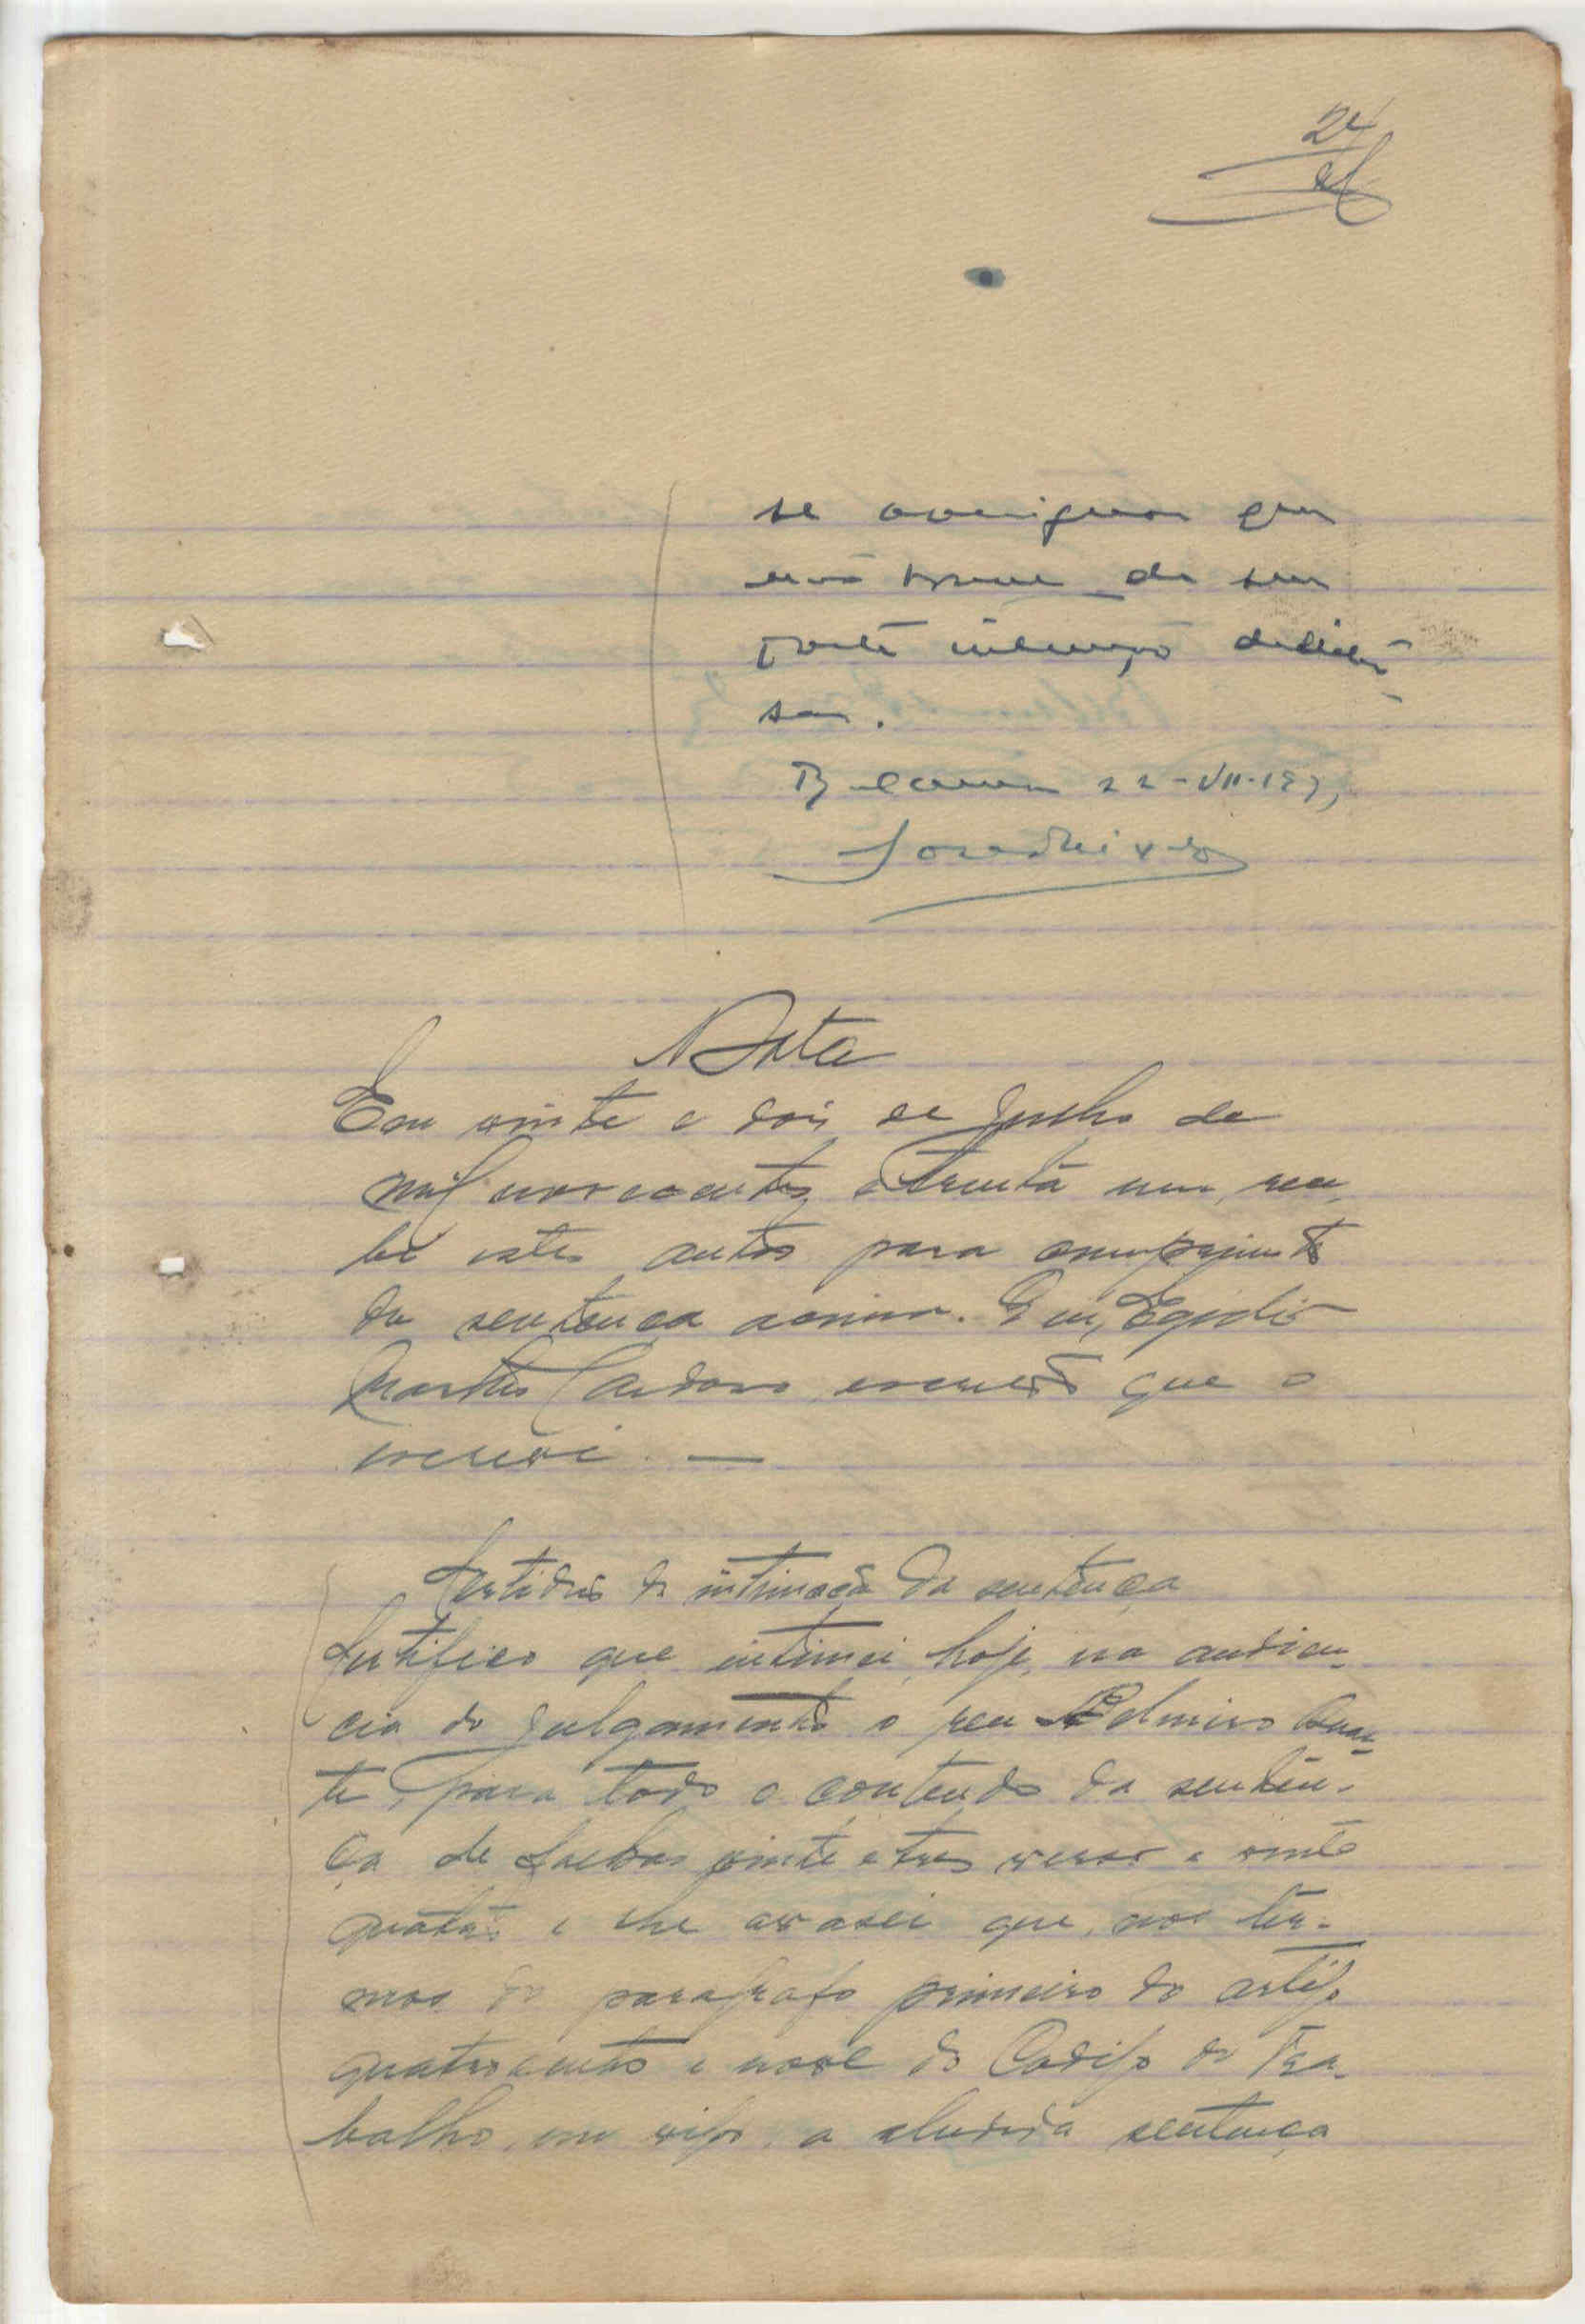 24
se averiguou que
não houve de sua
parte intenção
Data
Em vinte e dois de Julho de
mil novecentos e trinta um, rece-
bi estes autos para cumprimento
da sentença acima. Eu, Egidio
Martins Cardoso, escrivão que o
escrevi. —
Certidão de intimação da sentença
Certifico que intimei, hoje, na audien-
cia do julgamento o reu Edmiro
para todo o conteudo da senten-
ça de folhas vinte e tres verso e vinte
quatro e lhe avisei que, nos ter-
mos do paragrafo primeiro do artigo
quatrocentos e nove do Codigo do Tra-
balho, em vigor, a aludida sentença